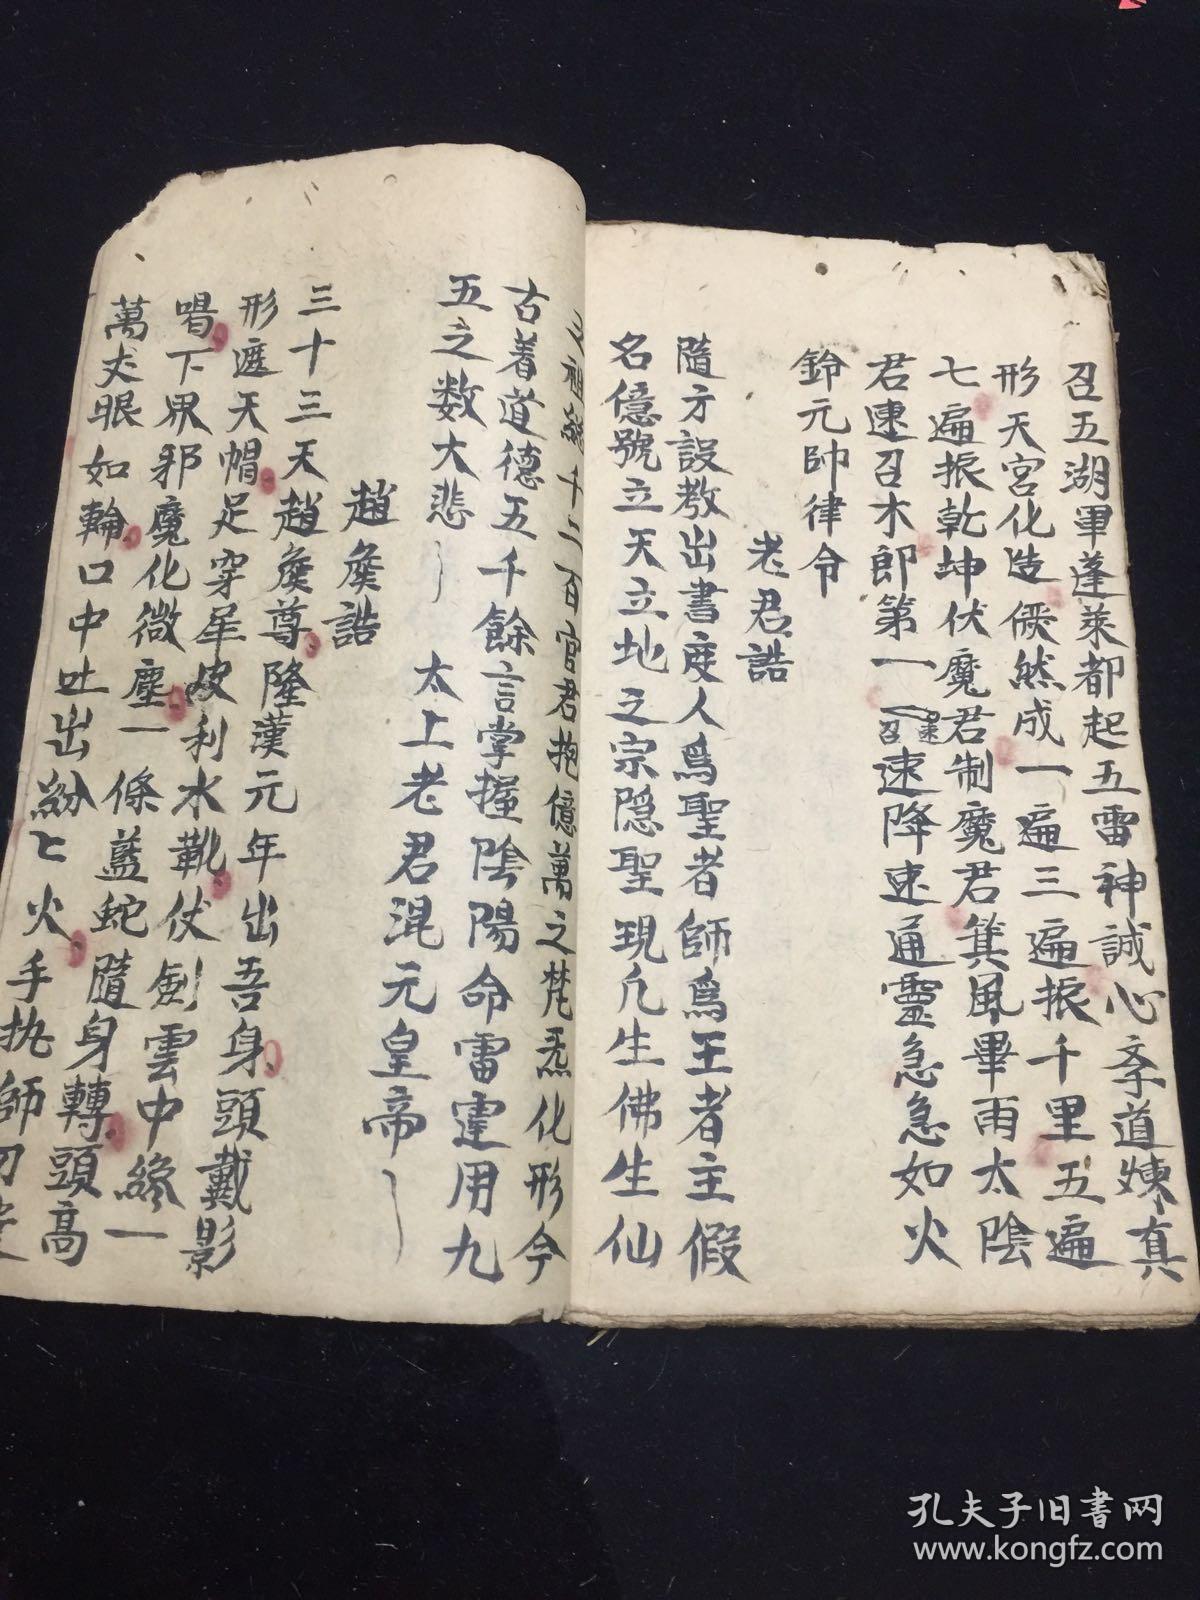 召五湖畢蓬萊都起五雷神誠心奉道煉真
形天宮化造倐然成一遍三遍振千里五遍
七遍振乾坤伏魔君制魔君箕風畢雨太陰
君速召木郎第一召速速降速通靈急急如火
鈴元帥律令
老君誥
隨方設教出書度人爲聖者師爲王者主假
名億號立天立地之宗隱聖現凡生佛生仙
之祖總千二百官君抱億萬之梵炁化形今
古着道德五千餘言掌握陰陽命雷霆用九
五之数大悲
太上老君混元皇帝
趙矦誥
三十三天趙矦尊隆漢元年出吾身頭戴影
形遮天帽足穿犀皮利水靴伏劍雲中絳一
喝下界邪魔化微塵一條藍蛇隨身轉頭高
萬丈眼如輪口中吐出紛七火手执師刀
孔夫子旧書网
www.kongfz.com